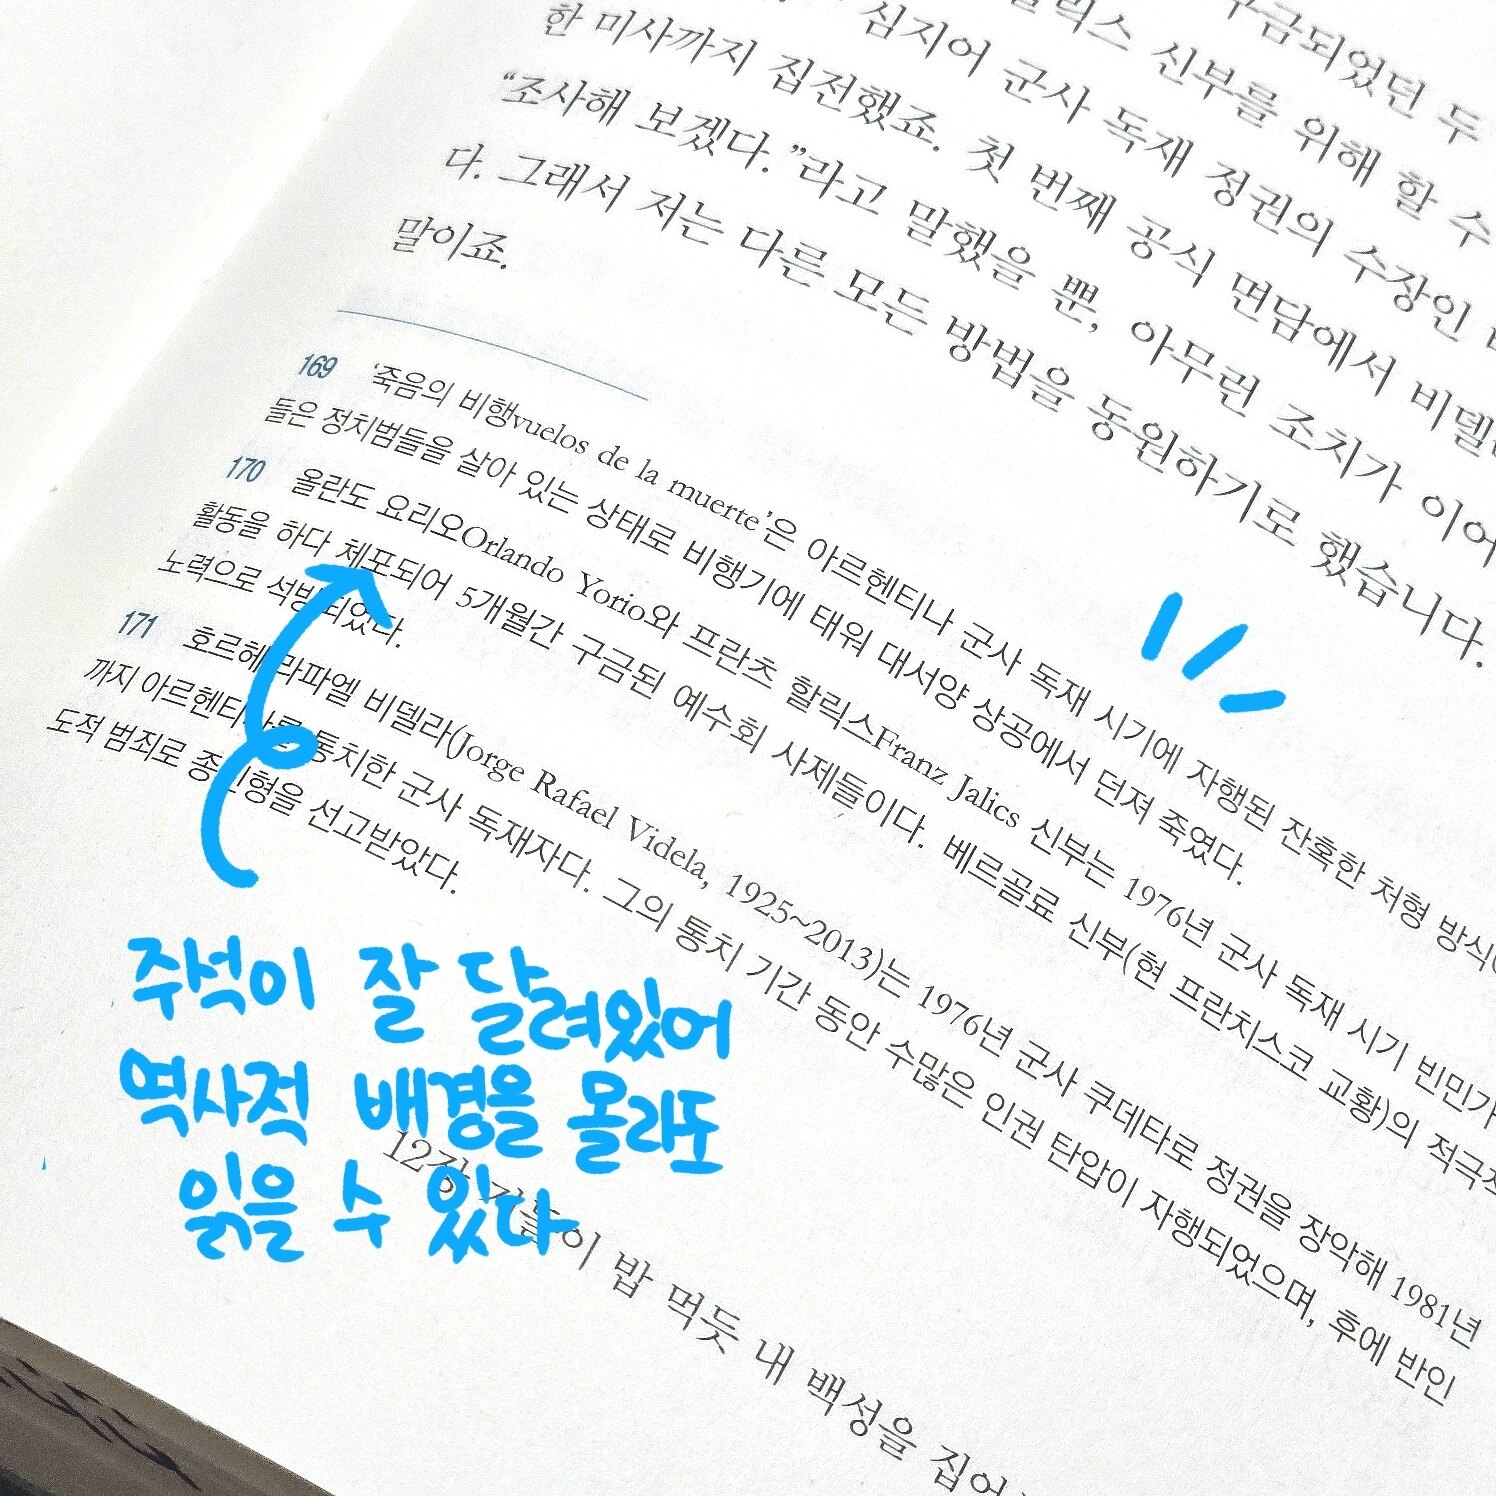 구금되었던 두
릭스 신부를 위해 할 수
심지어 군사 독재 정권의 수장인
한 미사까지 집전했죠. 첫 번째 공식 면담에서 비델
“조사해 보겠다.”라고 말했을 뿐, 아무런 조치가 이어
다. 그래서 저는 다른 모든 방법을 동원하기로 했습니다.
말이죠.
169 ‘죽음의 비행vuelos de la muerte’은 아르헨티나 군사 독재 시기에 자행된 잔혹한 처형 방식
들은 정치범들을 살아 있는 상태로 비행기에 태워 대서양 상공에서 던져 죽였다.
170 올란도 요리오Orlando Yorio와 프란츠 할릭스Franz Jalics 신부는 1976년 군사 독재 시기 빈민가
활동을 하다 체포되어 5개월간 구금된 예수회 사제들이다. 베르골료 신부(현 프란치스코 교황)의 적극적
노력으로 석방되었다.
171 호르헤 라파엘 비델라(Jorge Rafael Videla, 1925~2013)는 1976년 군사 쿠데타로 정권을 장악해 1981년
까지 아르헨티나를 통치한 군사 독재자다. 그의 통치 기간 동안 수많은 인권 탄압이 자행되었으며, 후에 반인
도적 범죄로 종신형을 선고받았다.
주석이 잘 달려있어
역사적 배경을 몰라도
읽을 수 있다
12장 밥 먹듯 내 백성을 집어